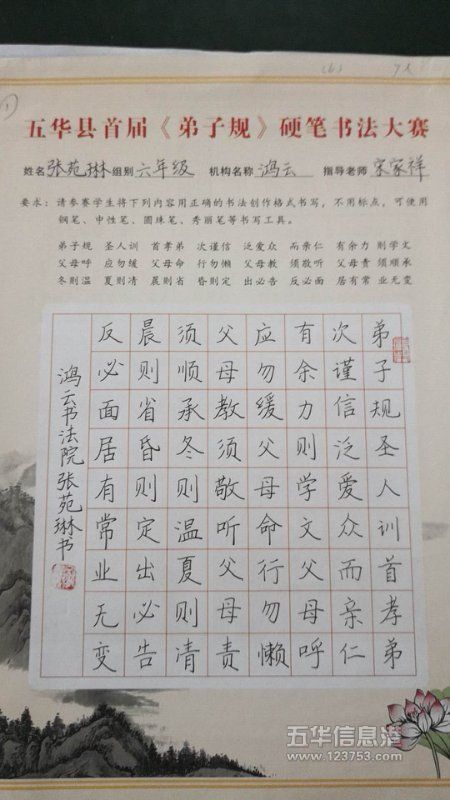 五华县首届《弟子规》硬笔书法大赛
姓名张苑琳组别六年级 机构名称鸿云 指导老师宋家祥
要求：请参赛学生将下列内容用正确的书法创作格式书写，不用标点，可使用
钢笔、中性笔、圆珠笔、秀丽笔等书写工具。
弟子规 圣人训 首孝弟 次谨信 泛爱众 而亲仁 有余力 则学文
父母呼 应勿缓 父母命 行勿懒 父母教 须敬听 父母责 须顺承
冬则温 夏则凊 晨则省 昏则定 出必告 反必面 居有常 业无变
弟子规圣人训首孝弟
次谨信泛爱众而亲仁
有余力则学文父母呼
应勿缓父母命行勿懒
父母教须敬听父母责
须顺承冬则温夏则凊
晨则省昏则定出必告
反必面居有常业无变
鸿云书法院张苑琳书
五华信息港
www.123753.com